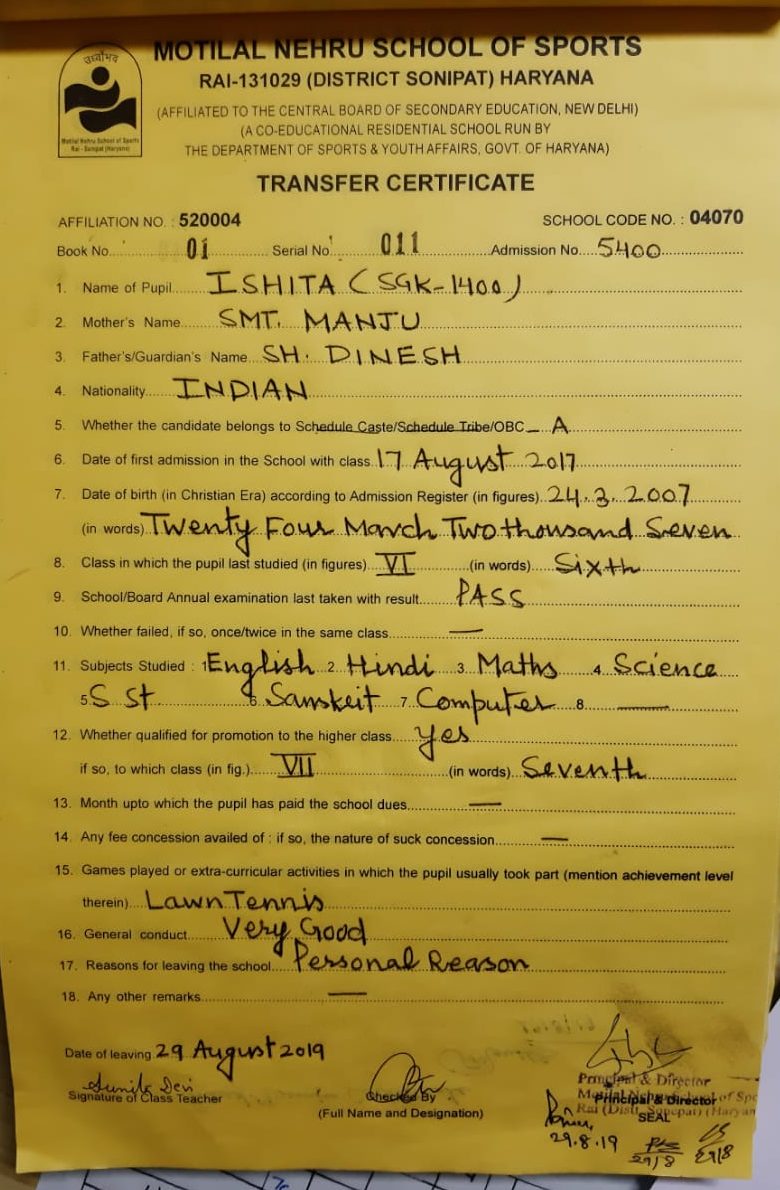 उध्वोभव
MOTILAL NEHRU SCHOOL OF SPORTS
RAI-131029 (DISTRICT SONIPAT) HARYANA
(AFFILIATED TO THE CENTRAL BOARD OF SECONDARY EDUCATION, NEW DELHI)
(A CO-EDUCATIONAL RESIDENTIAL SCHOOL RUN BY
THE DEPARTMENT OF SPORTS & YOUTH AFFAIRS, GOVT. OF HARYANA)
Motilal Nehru School of Sports
Rai - Sonipat (Haryana)
TRANSFER CERTIFICATE
AFFILIATION NO. : 520004 SCHOOL CODE NO. : 04070
Book No. 01 Serial No. 011 Admission No. 5400
1. Name of Pupil ISHITA (SGK-1400)
2. Mother's Name SMT. MANJU
3. Father's/Guardian's Name SH. DINESH
4. Nationality INDIAN
5. Whether the candidate belongs to Schedule Caste/Schedule Tribe/OBC A
6. Date of first admission in the School with class 17 August 2017
7. Date of birth (in Christian Era) according to Admission Register (in figures) 24.3.2007
(in words) Twenty Four March Two thousand Seven
8. Class in which the pupil last studied (in figures) VI (in words) Sixth
9. School/Board Annual examination last taken with result PASS
10. Whether failed, if so, once/twice in the same class —
11. Subjects Studied : 1 English 2. Hindi 3. Maths 4. Science
5 S. St. 6 Samskeit 7. Computer 8. —
12. Whether qualified for promotion to the higher class Yes
if so, to which class (in fig.) VII (in words) Seventh
13. Month upto which the pupil has paid the school dues —
14. Any fee concession availed of : if so, the nature of suck concession —
15. Games played or extra-curricular activities in which the pupil usually took part (mention achievement level
therein) Lawn Tennis
16. General conduct Very Good
17. Reasons for leaving the school Personal Reason
18. Any other remarks —
Date of leaving 29 August 2019
Sunita Devi
Signature of Class Teacher
Checked By
(Full Name and Designation)
Principal & Director
Motilal Nehru School of Spo
Principal & Director
Rai (Distt. Sonepat) (Haryan
SEAL
29.8.19
29/8
29/8